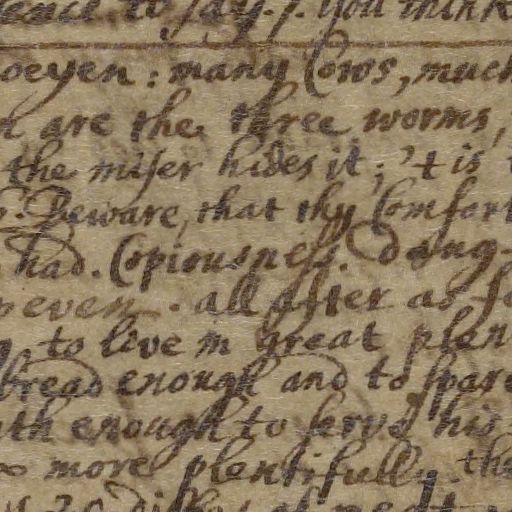 to say. s. you think
oeyen: many Cows, much
are the three worms,
the miser hides it; 't is
Beware, that thy Comfort
had. Copiousness. dong-
even. all after as
to live in great plen
bread enough and to spare
enough to serve his
more plentifully. the